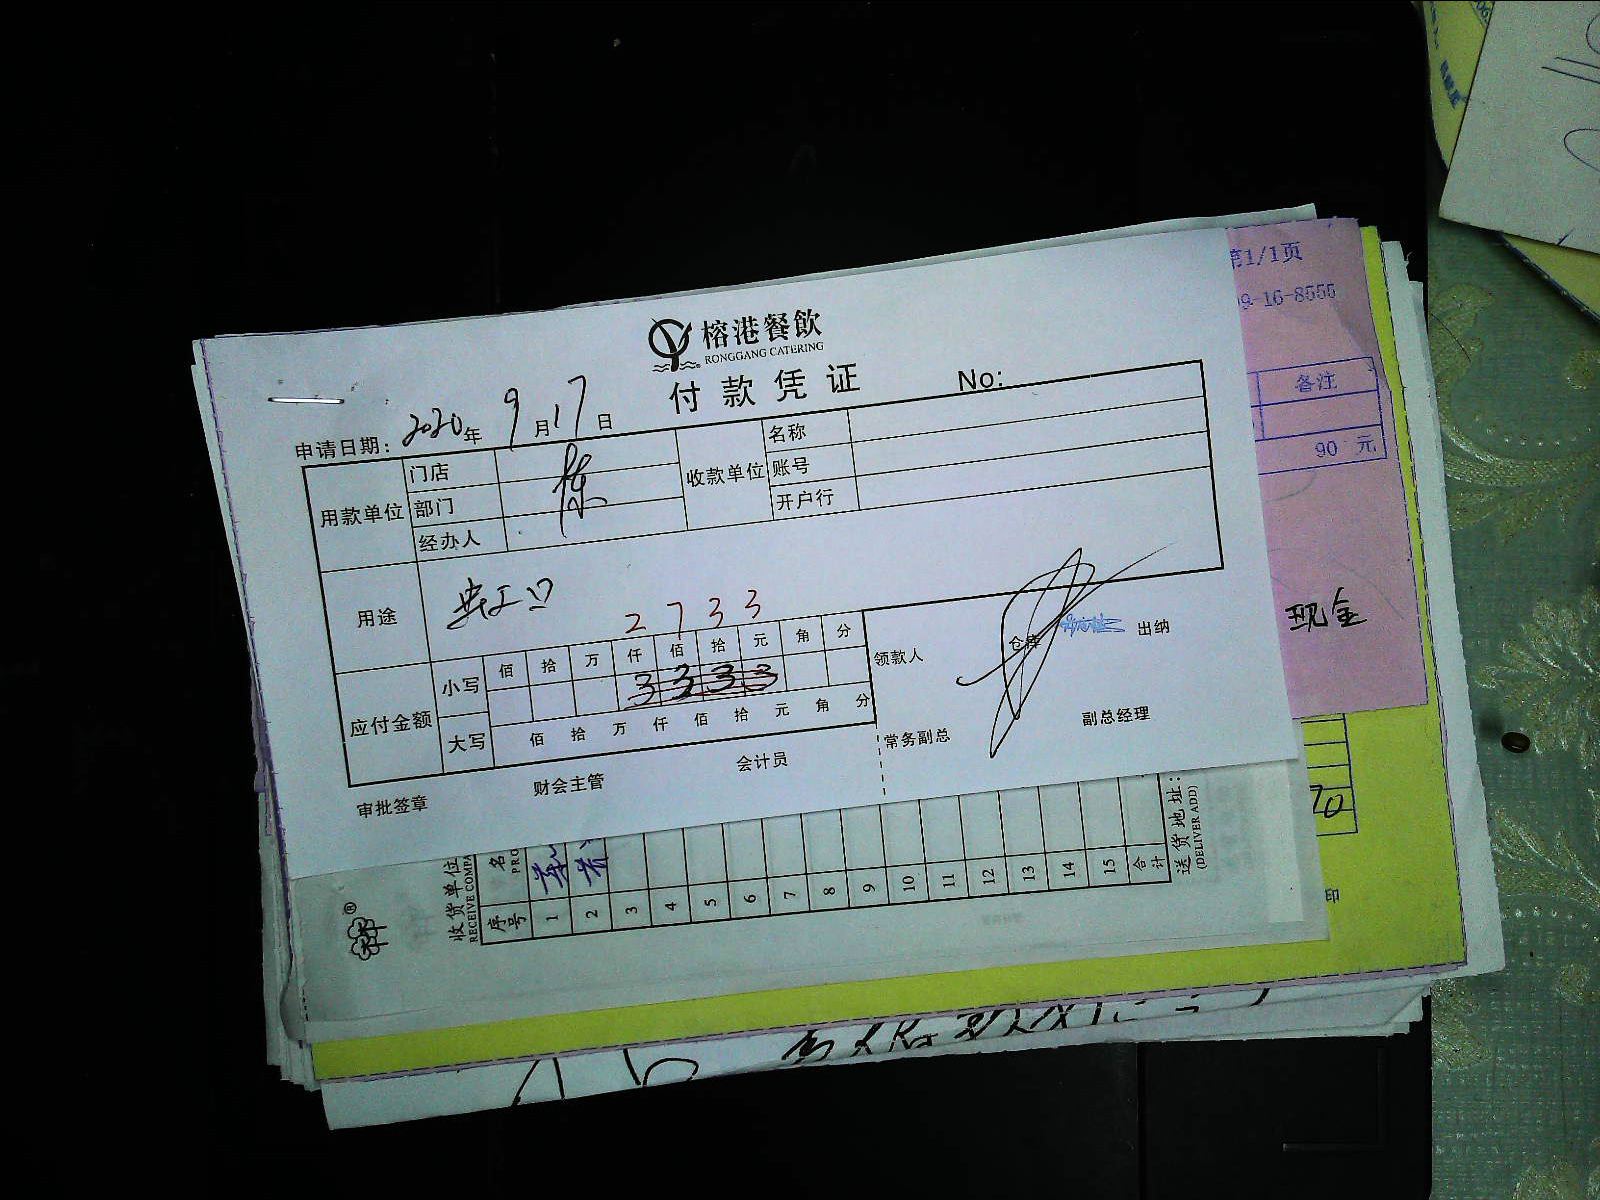 榕港餐飲
RONGGANG CATERING
付款凭证
No:
申请日期: 2020年 9月17日
用款单位
门店
部门
经办人
收款单位
名称
账号
开户行
用途
2733
应付金额
小写
佰 拾 万 仟 佰 拾 元 角 分
3333
大写
佰 拾 万 仟 佰 拾 元 角 分
领款人
仓库
出纳
常务副总
副总经理
审批签章
财会主管
会计员
第1/1页
09-16-8555
备注
90 元
现金
70
印
收货单位
RECEIVE COMPA
序号
名
PRO
1
2
3
4
5
6
7
8
9
10
11
12
13
14
15
合计
送货地址:
(DELIVER ADD)